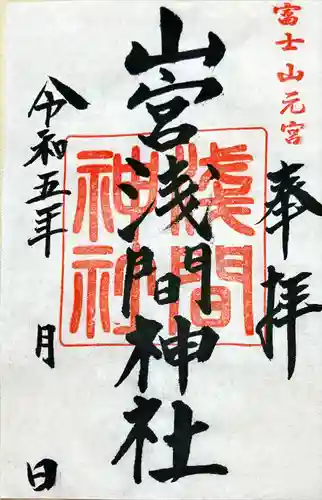 富士山元宮
奉拝
山宮浅間神社
浅間神社
令和五年 月 日